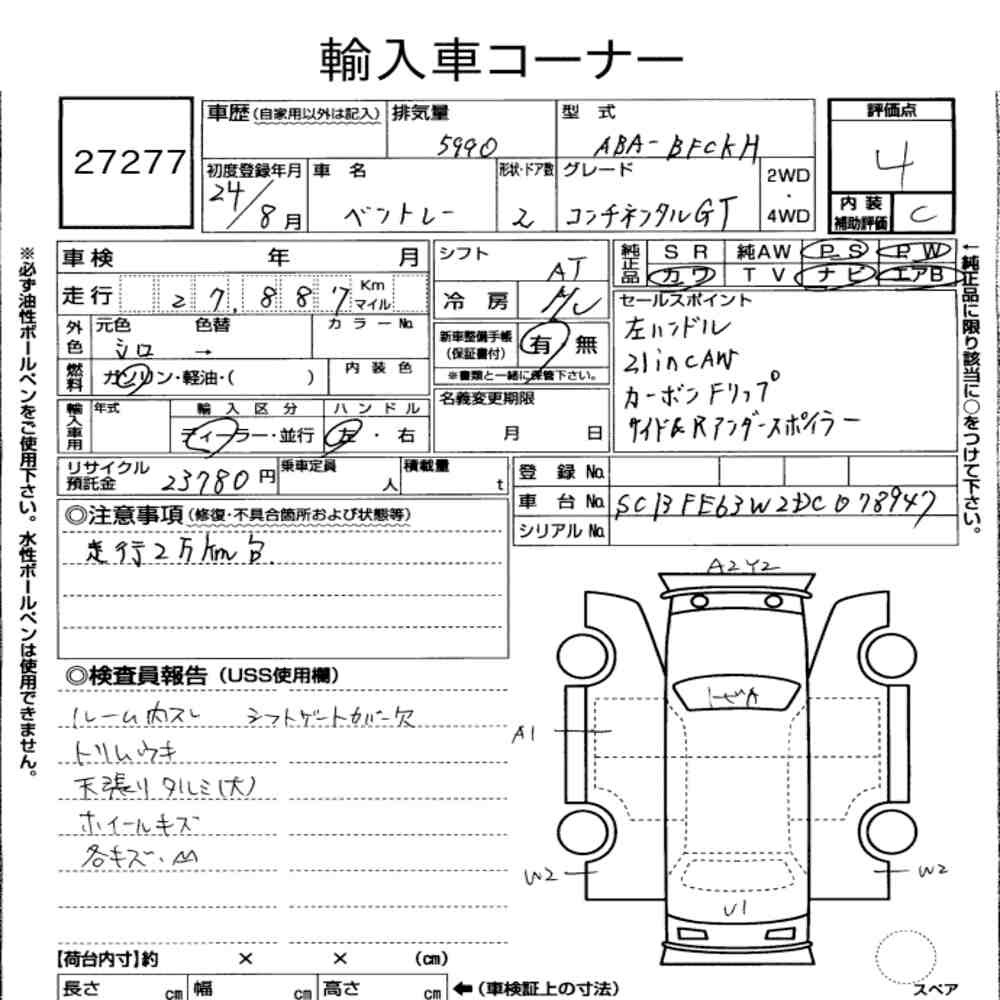 輸入車コーナー
27277
車歴(自家用以外は記入) 排気量 5990 型 式 ABA-BFCKH
評価点 4
初度登録年月 24/8月 車 名 ベントレー 形状・ドア数 2 グレード コンチネンタルGT 2WD・4WD
内装補助評価 C
車検 年 月
シフト AT
純正品 SR 純AW PS PW
カワ TV ナビ エアB
走行 27,887 Km マイル
冷房
セールスポイント
左ハンドル
21inCAW
カーボンFリップ
サイド&Rアンダースポイラー
外色 元色 シロ 色替 → カラーNo.
新車整備手帳(保証書付) 有 無
※書類と一緒に保管下さい。
燃料 ガソリン・軽油・( ) 内装色
名義変更期限
月 日
輸入車用 年式 輸入区分 ハンドル
ディーラー・並行 左・右
リサイクル預託金 23780円 乗車定員 人 積載量 t
登録 No.
車台 No. SCBFE63W2DC078947
シリアル No.
◎注意事項(修復・不具合箇所および状態等)
走行2万km台
◎検査員報告(USS使用欄)
ルーム内スレ シフトゲートカバー欠
トリムウキ
天張りタルミ(大)
ホイールキズ
各キズ・
A2Y2
A1
W2
W2
U1
スペア
【荷台内寸】約 × × (cm)
長さ cm 幅 cm 高さ cm ←(車検証上の寸法)
※必ず油性ボールペンをご使用下さい。水性ボールペンは使用できません。
←純正品に限り該当に○をつけて下さい。